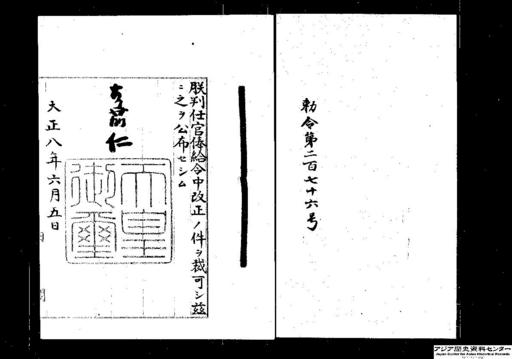 勅令第二百七十六号
朕判任官俸給令中改正ノ件ヲ裁可シ茲
ニ之ヲ公布セシム
嘉仁
天皇
御璽
大正八年六月五日
アジア歴史資料センター
Japan Center for Asian Historical Records